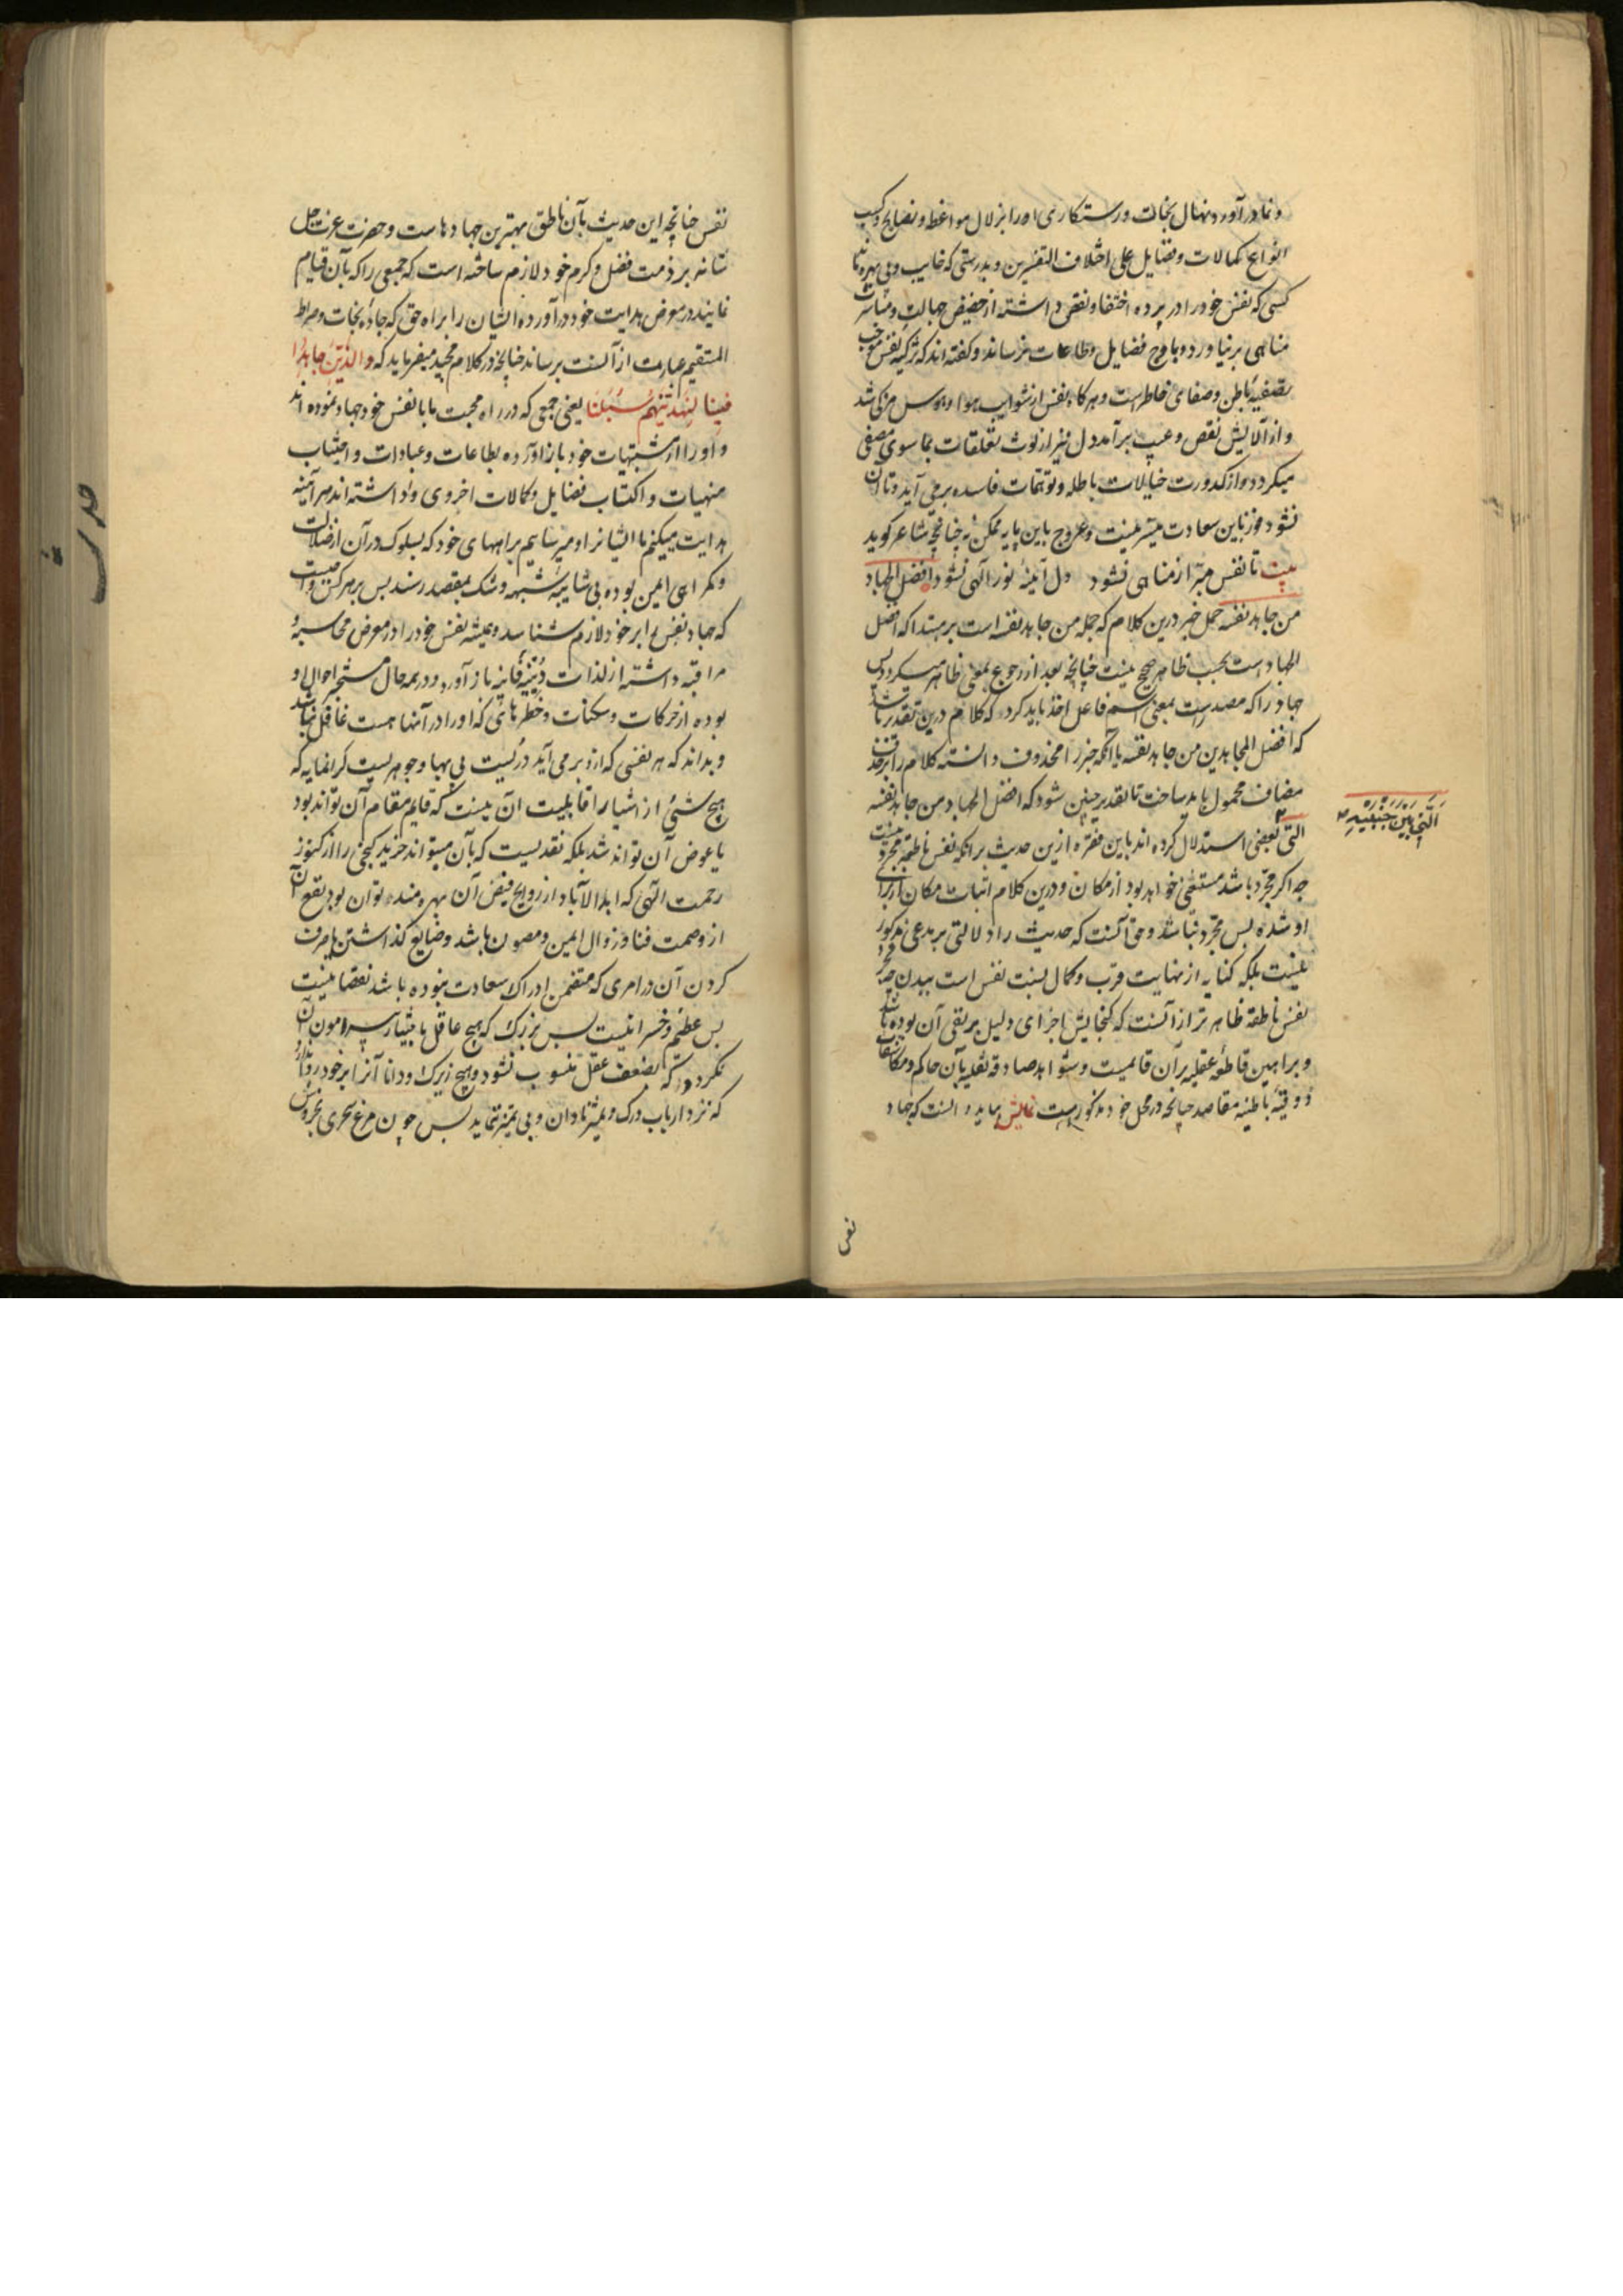 و نما در آورد و نهال نجات و رستکاری او را بزلال مواعظ و نصایح و کسب
انواع کمالات و فضایل علی اختلاف التفسیرین و بدرستی که خایب و بی بهره
کسی که نفس خود را در پرده اختفا و نقص داشته از حضیض جهالت و
مناهی بر نیاورد و باوج فضایل و طاعات نرساند و کفته اند که تزکیه نفس موجب
تصفیهٔ باطن و صفای خاطر است و هرکاه نفس از شوایب هوا و هوس مزکی شد
و از آلایش نقص و عیب برآمد دل نیز از لوث تعلقات بما سوی مصفی
میکردد و از کدورت خیالات باطله و توهمات فاسده بر می آید و تا آن
نشود فوز باین سعادت میسر نیست و عروج باین پایه ممکن نه چنانچه شاعر کوید
بیت تا نفس مبرا ز مناهی نشود دل آینهٔ نور الهی نشود افضل الجهاد
من جاهد نفسه حمل خبر درین کلام که جمله من جاهد نفسه است بر مبتدا که افضل
الجهاد است بحسب ظاهر صحیح نیست چنانچه بعد از رجوع بمعنی ظاهر میکردد پس
جهاد را که مصدر است بمعنی اسم فاعل اخذ باید کرد که کلام درین تقدیر باشد
که افضل المجاهدین من جاهد نفسه یا آنکه خبر را محذوف دانسته کلام را بر حذف
مضاف محمول باید ساخت تا تقدیر چنین شود که افضل الجهاد من جاهد نفسه
التی بعضی استدلال کرده اند باین فقره ازین حدیث بر آنکه نفس ناطقه مجرد نیست
چه اکر مجرد باشد مستغنی خواهد بود از مکان و درین کلام اثبات مکان از برای
او شده پس مجرد نباشد و حق آنست که حدیث را دلالتی بر مدعی مذکور
نیست بلکه کنایه از نهایت قرب و کمال نسبت نفس است ببدن چه تجرد
نفس ناطقه ظاهر تر از آنست که کنجایش اجزای دلیل بر نفی آن بوده باشد
و براهین قاطعه عقلیه بر آن قائمست و شواهد صادقه نقلیه بآن حاکم و مکاشفات
ذوقیهٔ باطنیه مقاصد چنانچه در محل خود مذکور است نمایش باید دانست که جهاد
التی بین جنبیه
نفس
نفس چنانچه این حدیث بآن ناطق بهترین جهادهاست و حضرت عزت جل
شانه بر ذمت فضل و کرم خود لازم ساخته است که جمعی را که بآن قیام
نمایند در معرض هدایت خود درآورده ایشان را براه حق که جادهٔ نجات و صراط
المستقیم عبارت از آنست برساند چنانچه در کلام مجید میفرماید که والذین جاهدوا
فینا لنهدینهم سبلنا یعنی جمعی که در راه محبت ما با نفس خود جهاد نموده اند
و او را از مشتهیات خود باز آورده بطاعات و عبادات و اجتناب
منهیات و اکتساب فضایل و کمالات اخروی وا داشته اند هر آینه
هدایت میکنم ما ایشانرا و میرسانیم براههای خود که بسلوک در آن از ضلالت
و کمراهی ایمن بوده بی شایبهٔ شبهه و شک بمقصد رسند پس بر هر کس واجبست
که جهاد نفس را بر خود لازم شناسد و همیشه نفس خود را در معرض محاسبه و
مراقبه داشته از لذات دنیه فانیه باز آورد و در همه حال مستخبر احوال او
بوده از حرکات و سکنات و خطرهائی که او را در آنها هست غافل نباشد
و بداند که هر نفسی که ازو بر می آید دریست بی بها و جوهریست کرانمایه که
هیچ شئی از اشیا را قابلیت آن نیست که قایم مقام آن تواند بود
یا عوض آن تواند شد بلکه نقدیست که بآن میتواند خرید کنجی را از کنوز
رحمت الهی که ابد الآباد از روایح فیض آن بهره مند توان بود و نفع آن
از وصمت فنا و زوال ایمن و مصون باشد و ضایع کذاشتن یا صرف
کردن آن در امری که متضمن ادراک سعادت نبوده باشد نقصانیست
بس عظیم و خسرانیست بس بزرک که هیچ عاقل با هشیار پیرامون آن
نکردد که بضعف عقل منسوب نشود و هیچ زیرک و دانا آنرا بر خود روا ندارد
که نزد ارباب درک و تمیز نادان و بی تمیز نماید پس چون مرغ سحری بخروش